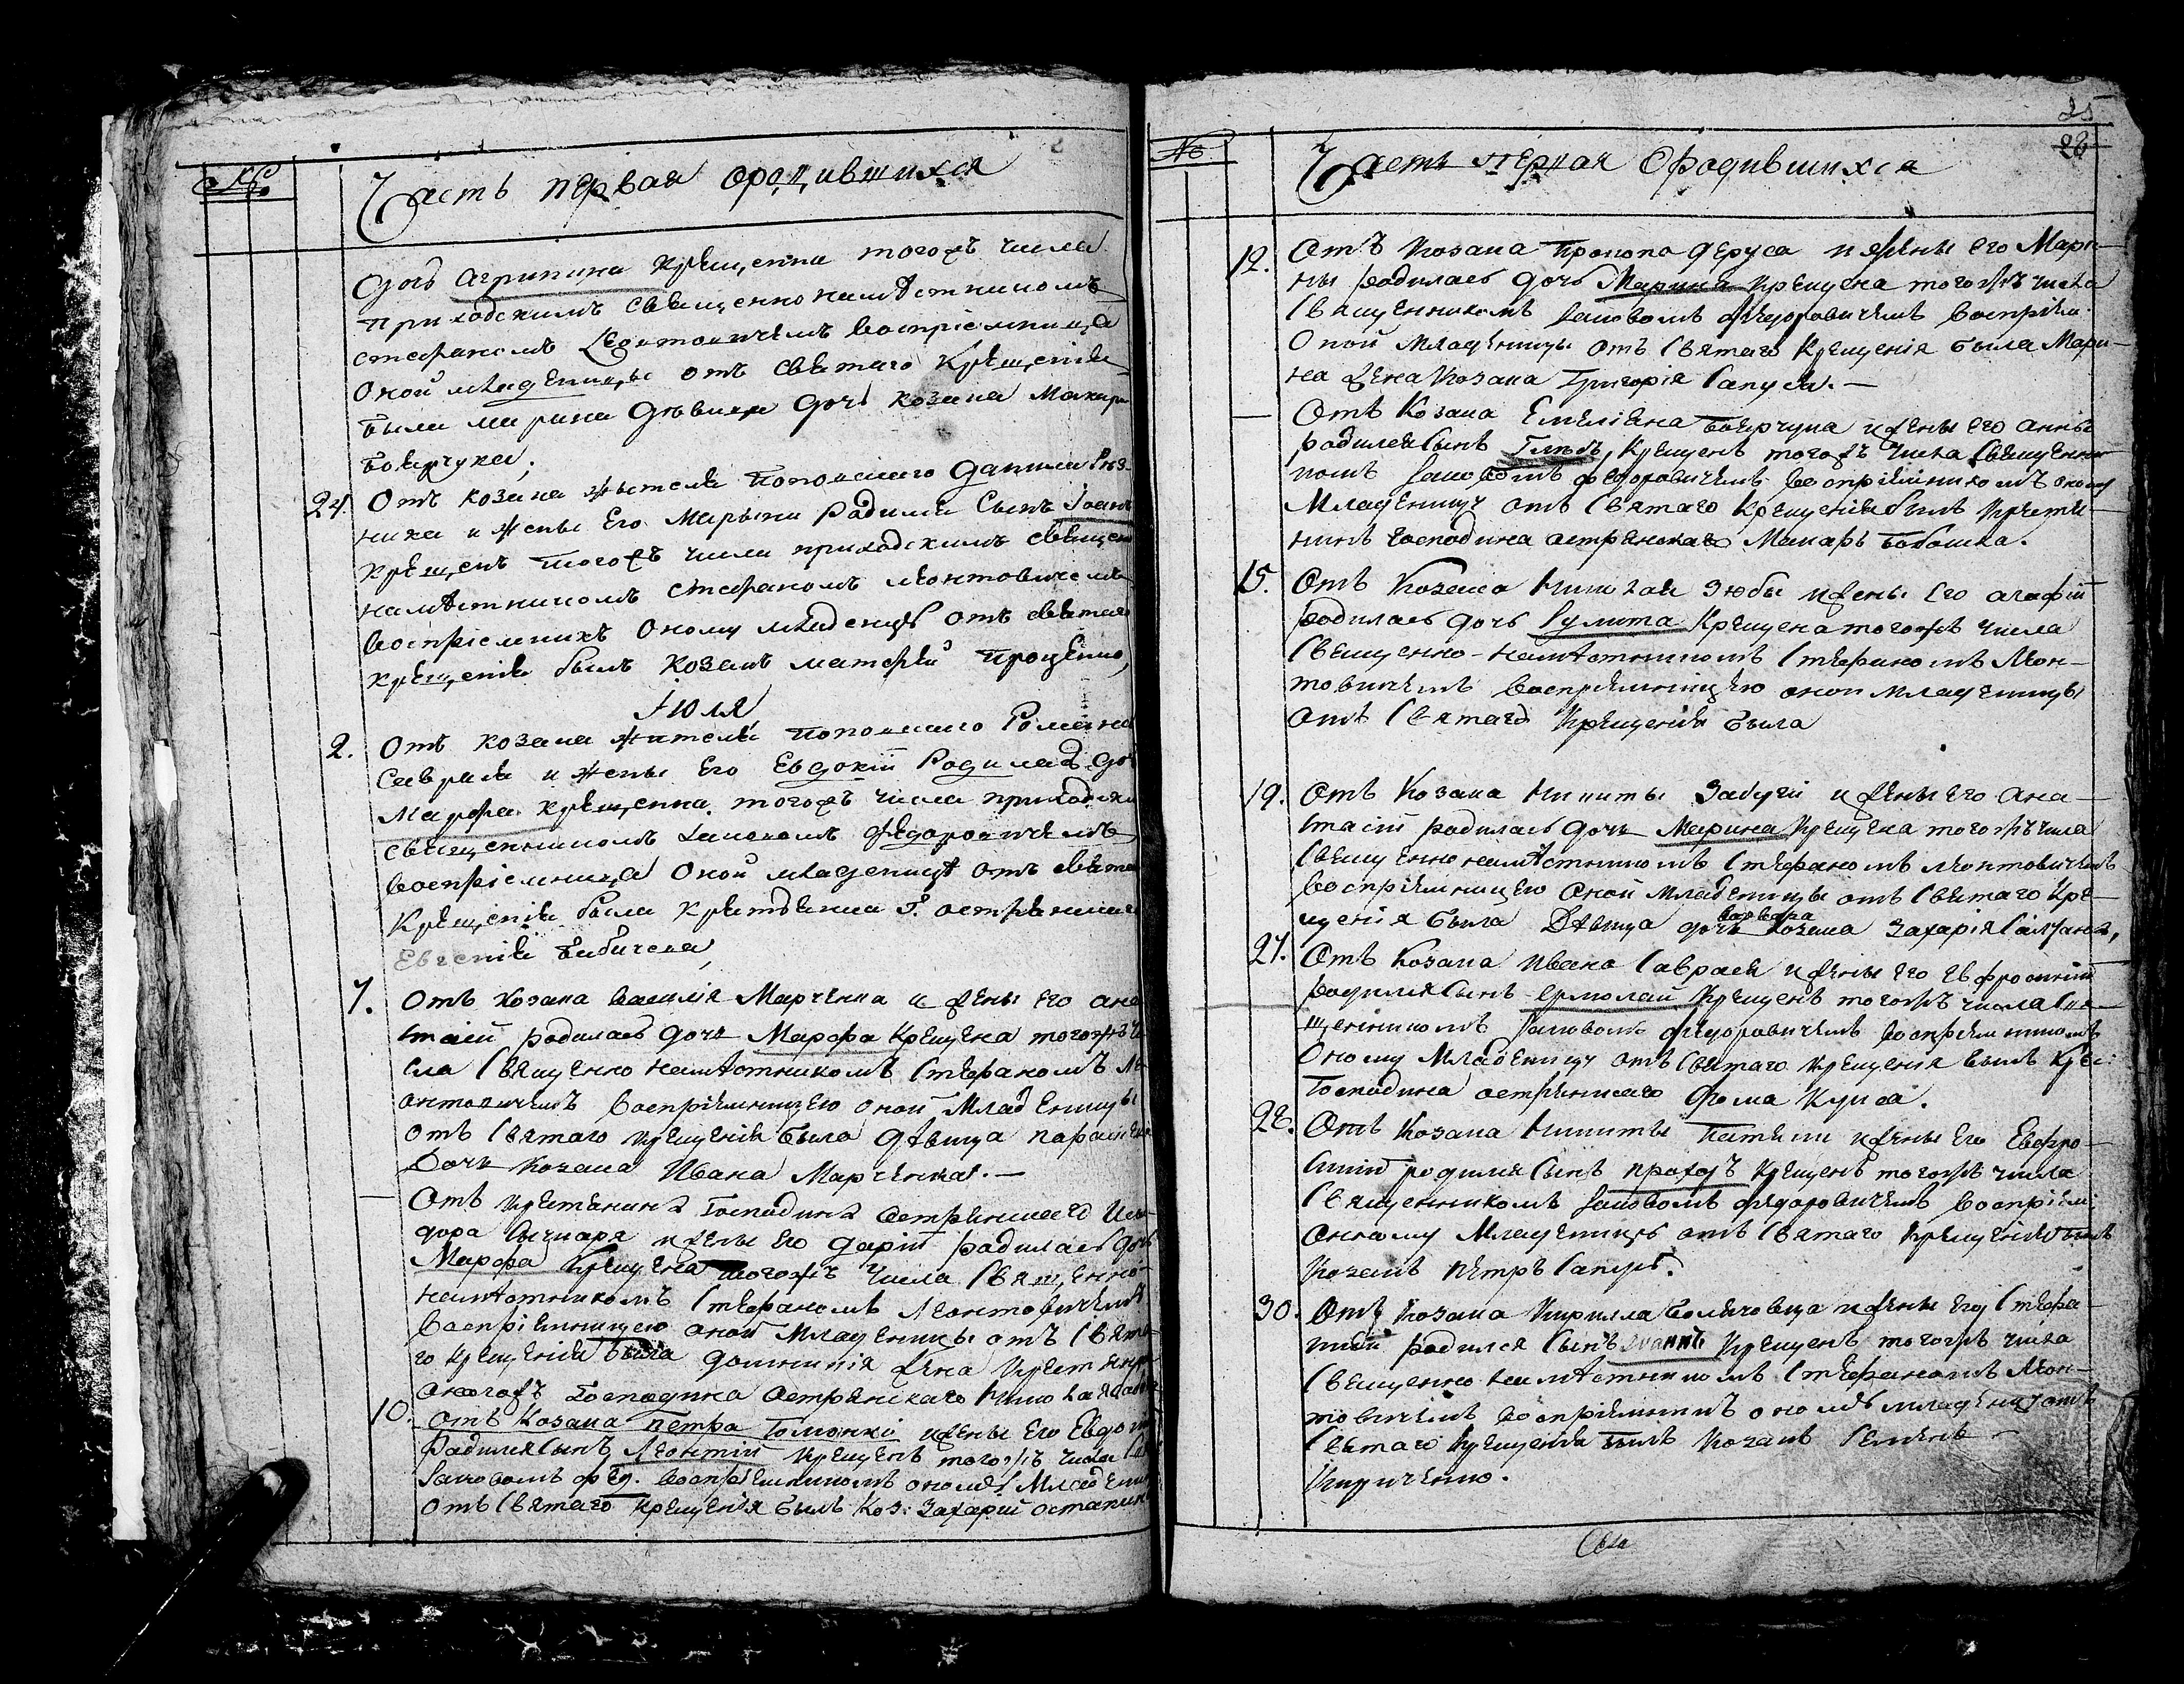 №
Часть первая ородившихся
дочь Агрипина крещенна тогожъ числа
приходскимъ священнонамѣстникомъ
стефаномъ Леонтовичемъ воспріемница
Оной младеницы отъ святаго крещенія
была марина дѣвица дочь козака Макара
24. Отъ козака жителя Поповскаго Данила
ника и жены Его Марыны Родился Сынъ Іоаннъ
крещенъ тогожъ числа приходскимъ священ
намѣстникомъ Стефаномъ леонтовичемъ
воспріемникъ Оному младенцу отъ святаго
крещенія былъ козакъ матфей Проценко,
Іюля
2. Отъ козака жителя Поповскаго Романа
Саврая и жены Его Евдокіи Родилась доч
Марфа крещенна тогожъ числа приходски
священникомъ Іаковомъ федоровичемъ
воспріемница Оной младеницѣ отъ свята
Крещенія была крестьянка Г. острянска
Евгенія Бабичева,
7. Отъ козака василія Марченка и жены его ана
стасіи родилась дочь Марфа крещена тогожъ чи
сла Священно намѣстникомъ Стефаномъ Ле
онтовичемъ воспріемницею оной Младеницы
отъ Святаго крещенія была дѣвица
Дочь козака Ивана Марченка. —
— Отъ крестянина Господина Острянскаго
дора и жены его даріи родилась дочь
Марфа крещена тогожъ числа Священно-
намѣстникомъ Стефаномъ Леонтовичемъ
воспріемницею оной Младеницы отъ Свята-
го крещенія была домникія жена крестянина
оногожъ Господина Острянскаго
10. отъ козака петра и жены Его Евдок
родился Сынъ Леонтій крещенъ тогожъ числа
Іаковомъ фед. воспріемникомъ Младен
отъ Святаго крещенія былъ Коз: Захарій
25
26
№
Часть первая Ородившихся
12. Отъ козака Прокопа Деруса и жены его Мари-
ны родилась дочь Марина крещена тогожъ числа
Священникомъ Іаковомъ федоровичемъ воспріем:
Оной Младеницы отъ Святаго крещенія была Мари-
на жена козака Григорія Сапуся. —
— Отъ Козака Емеліяна и жены его анны
родился Сынъ Глѣбъ, крещенъ тогожъ числа Священни-
комъ Іаковомъ федоровичемъ воспріемникомъ оному
Младеницу отъ Святаго крещенія былъ крестя-
нинъ Господина острянскаго Макаръ Бабошка.
15. Отъ козака Николая Зюбы и жены Его агафіи
родилась дочь Іулита крещена тогожъ числа
Священно-намѣстникомъ Стефаномъ Леон-
товичемъ воспріемницею оной младеницы
отъ Святаго крещенія была
19. Отъ козака Никиты Забуги и жены Его Ана-
стасіи родилась дочь Марина крещена тогожъ числа
Священнонамѣстникомъ Стефаномъ леонтовичемъ
воспріемницею оной младеницы отъ Святаго кре-
щенія была Дѣвица варвара дочь козака Захарія
27. Отъ козака Ивана Саврая и жены его евфросиніи
родился Сынъ ермолай крещенъ тогожъ числа Свя-
щенникомъ Іаковомъ федоровичемъ воспріемникомъ
Оному Младеницу отъ Святаго крещенія былъ кре:
Господина острянскаго Фома Купса.
28. Отъ козака Никиты и жены Его Евфро-
синіи родился Сынъ крещенъ тогожъ числа
Священникомъ Іаковомъ федоровичемъ воспріем:
Оному Младеницу отъ Святаго крещенія былъ
козакъ петръ Сапусь.
30. Отъ козака кирилла и жены Его Стефа-
ниды родился Сынъ Іоаннъ крещенъ тогожъ числа
Священно намѣстникомъ Стефаномъ Леон-
товичемъ воспріемникъ ономъ младеницу отъ
Святаго крещенія былъ козакъ Семенъ —
Кириченко.